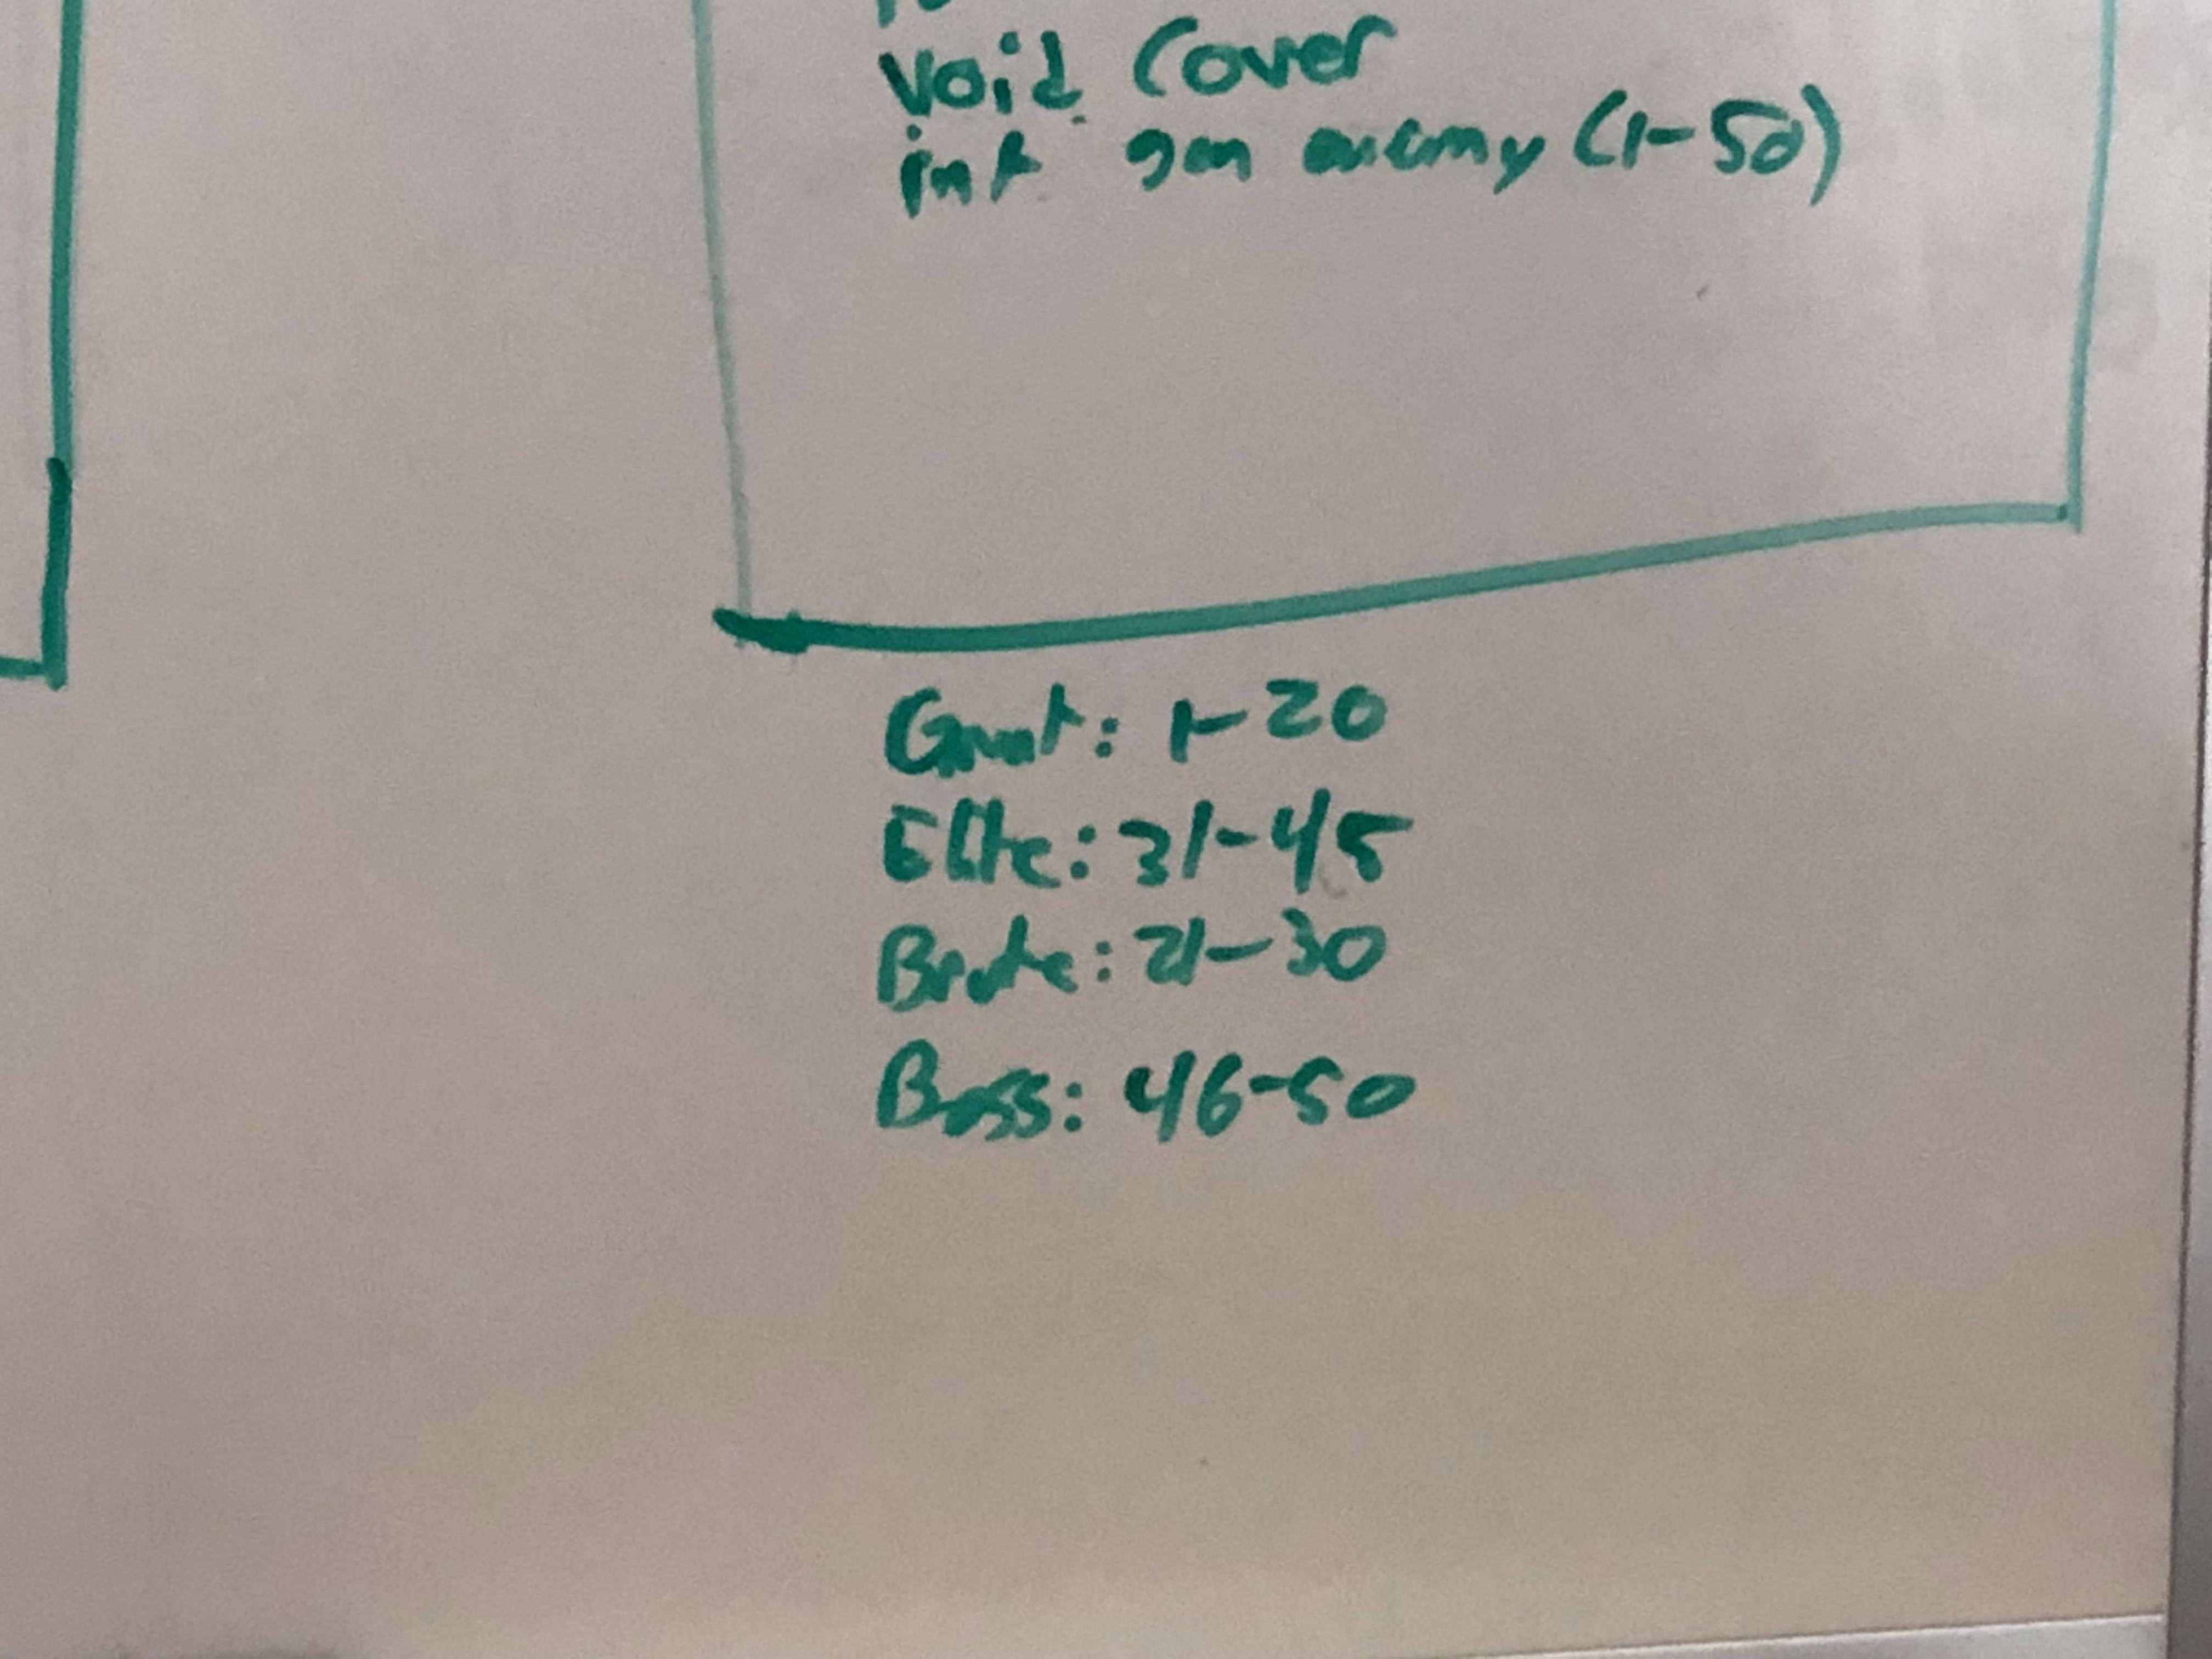 void cover
int gen enemy (1-50)
Grunt: 1-20
Elite: 31-45
Brute: 21-30
Boss: 46-50